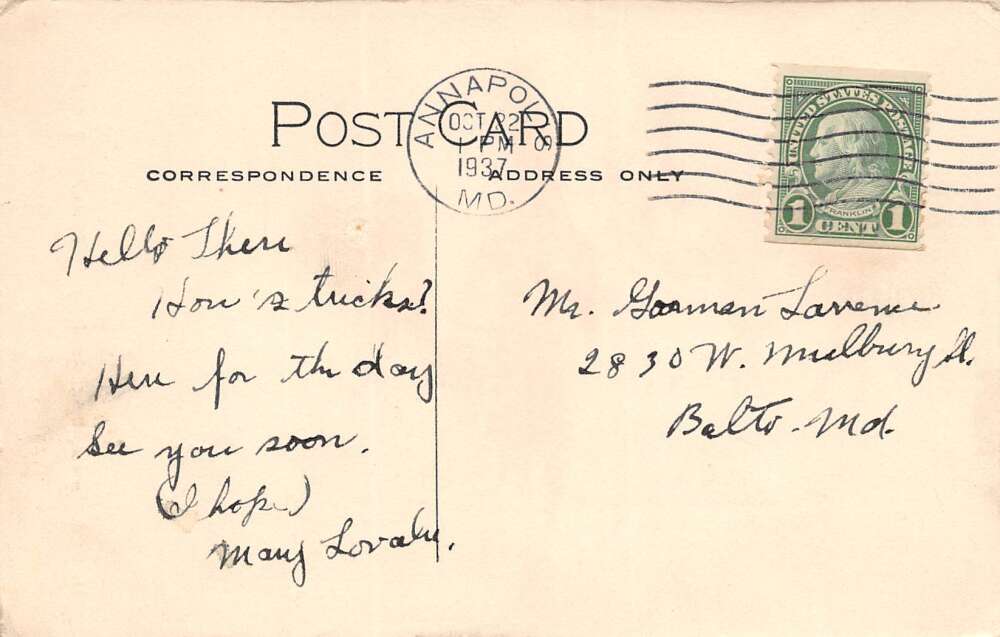 POST CARD
CORRESPONDENCE
ADDRESS ONLY
ANNAPOLIS
OCT 22
1 PM
1937
MD.
UNITED STATES POSTAGE
FRANKLIN
1 CENT 1
Hello There
How's tricks?
Here for the day
See you soon.
(I hope)
Mary
Mr. Gorman Lawrence
2830 W. Mulbury St.
Balto. Md.